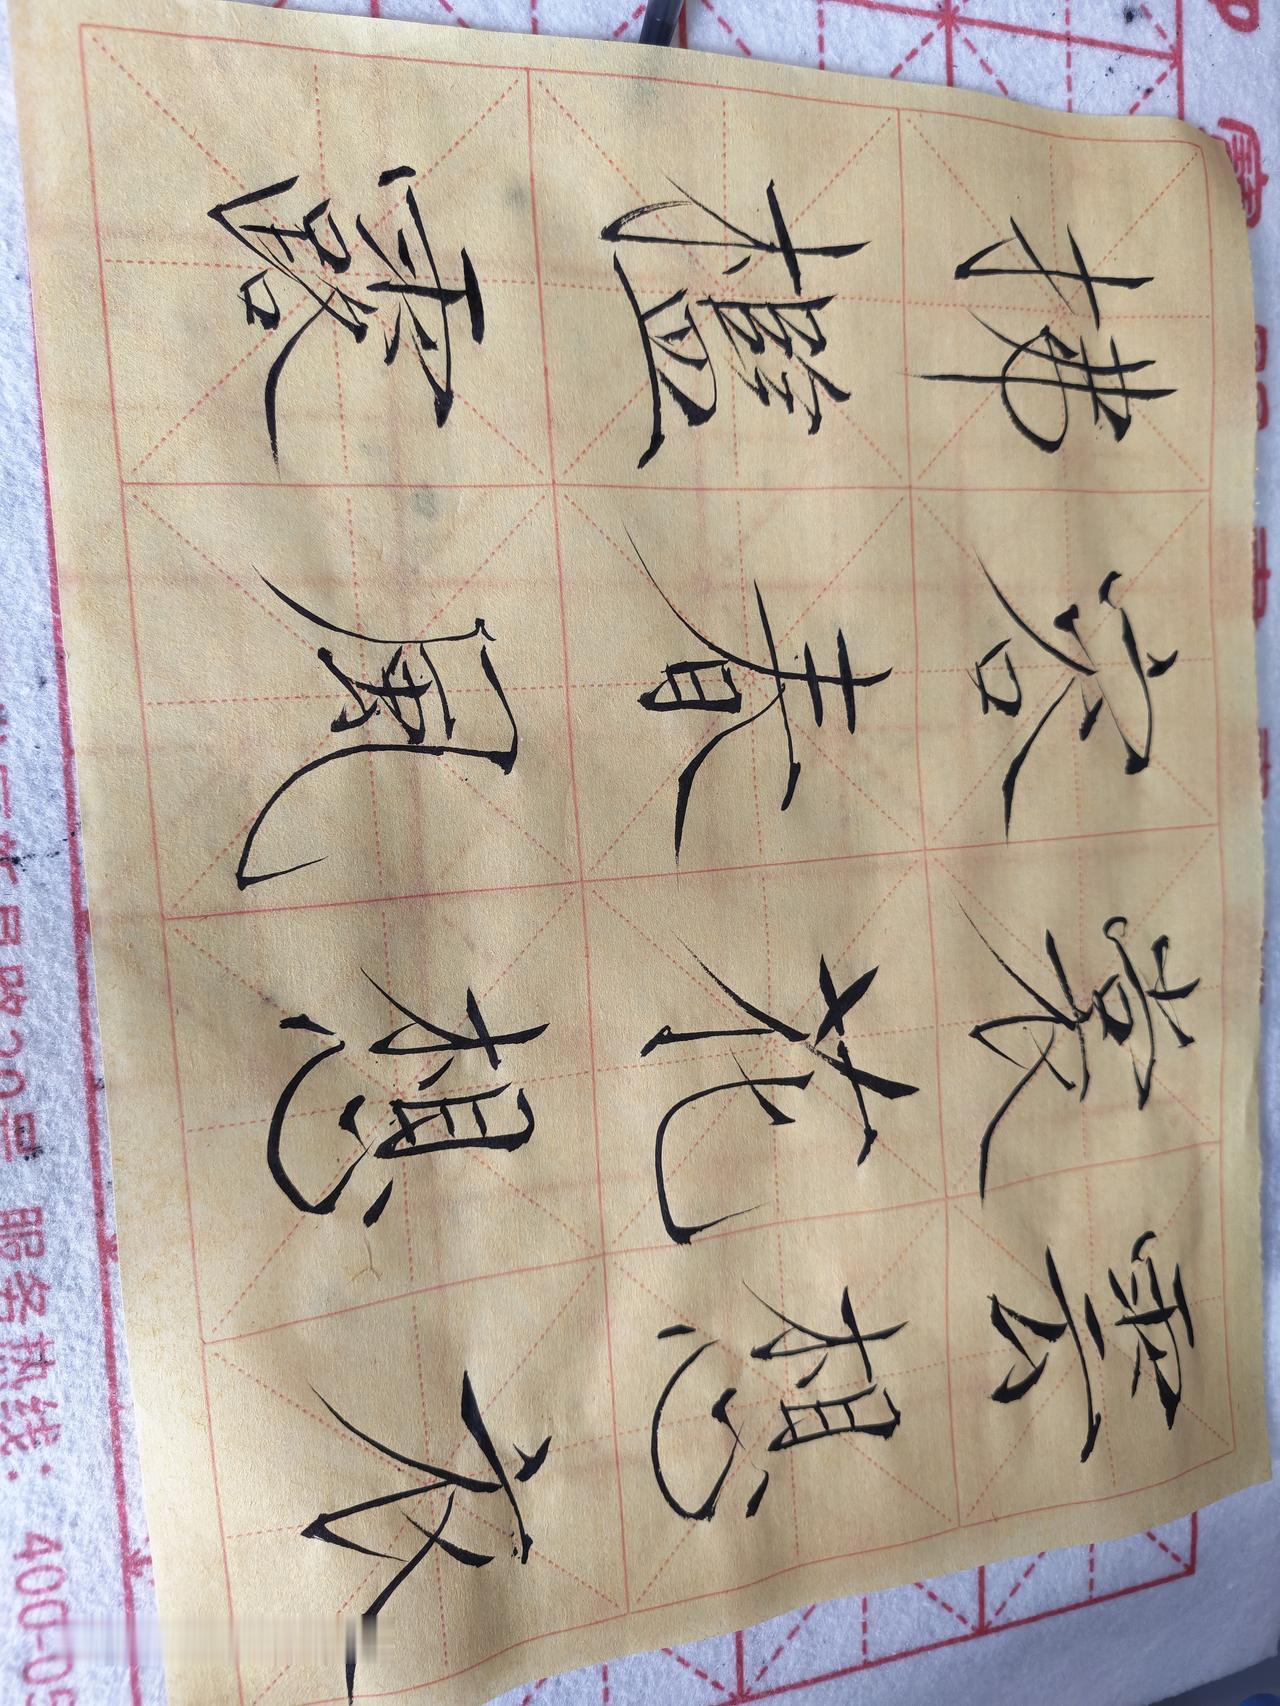 雲想衣
裳花想
容春風
拂檻露
路20号 服务热线：400-05